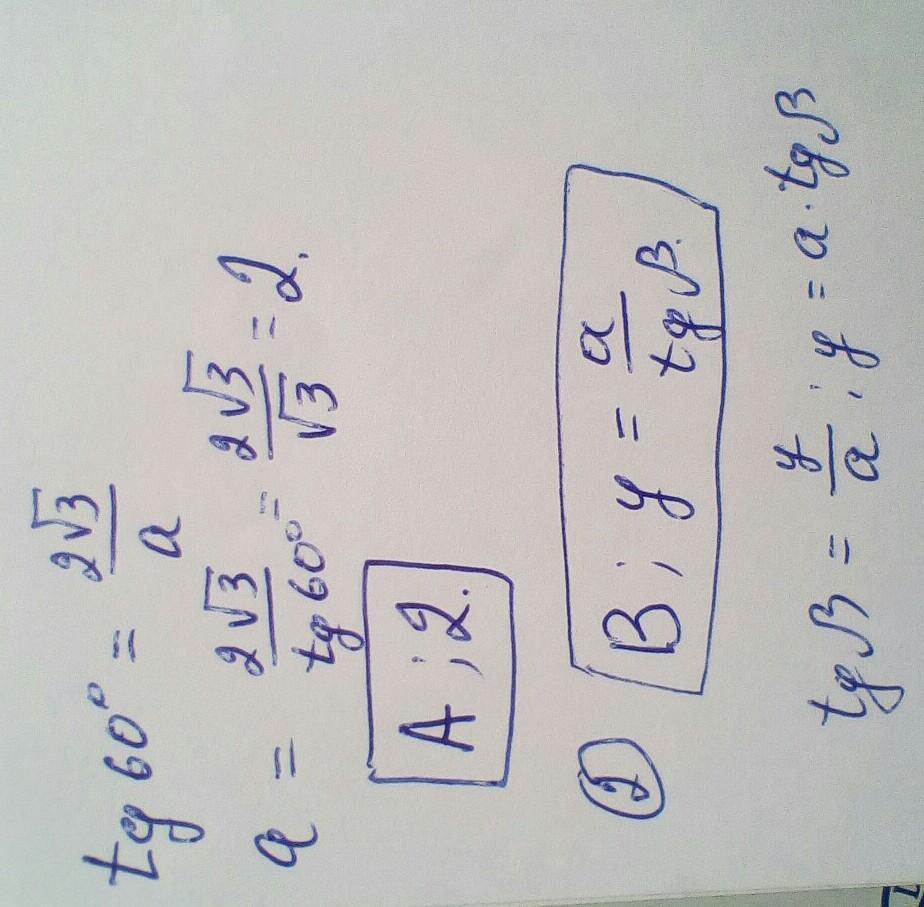 tg 60° = 2√3/a
a = 2√3/tg 60° = 2√3/√3 = 2.
A; 2.
② B; y = a/tgβ.
tgβ = y/a; y = a·tgβ